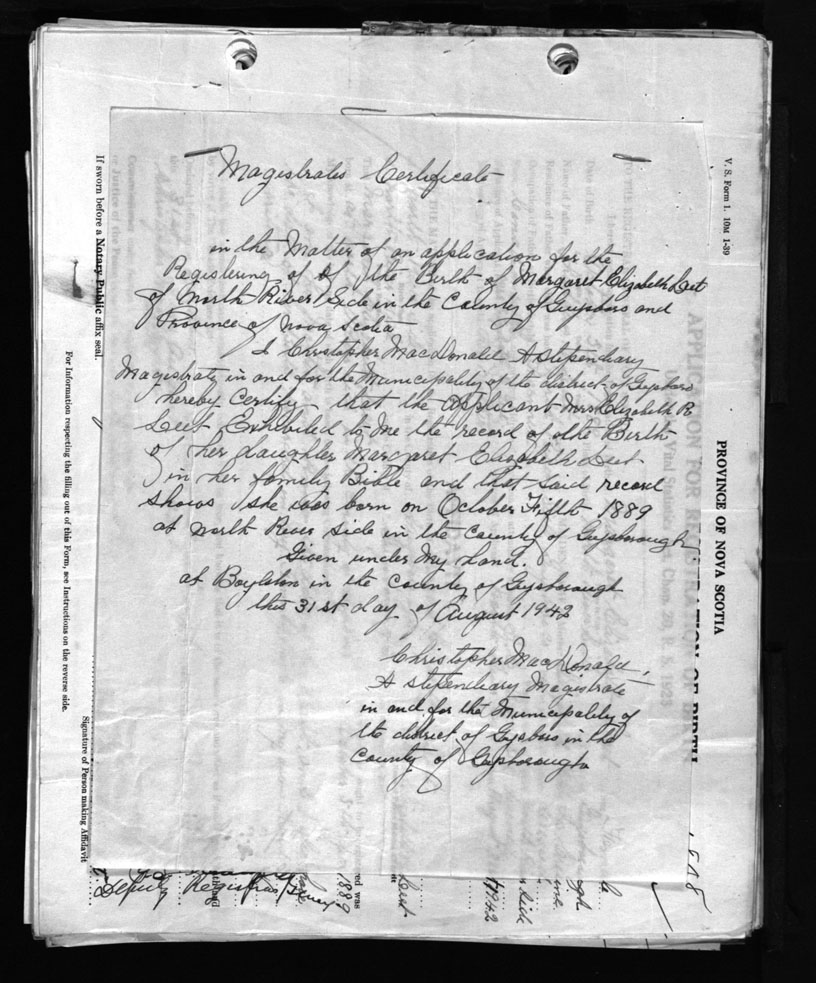 Magistrates Certificate
in the Matter of an application for the
Registering of of the Berth of Margaret Elizabeth Leet
of North River Side in the County of Guysboro and
Province of Nova Scotia
I Christopher MacDonald A stipendiary
Magistrate in and for the Municipality of the district of Guysboro
hereby Certify that the applicant Mrs Elizabeth R
Leet Exhibited to me the record of the Berth
of her daughter Margaret Elizabeth Leet
in her family Bible and that said record
shows she was born on October Fifth 1889
at North River Side in the County of Guysborough
Given under My hand.
at Boylston in the County of Guysborough
this 31st day of August 1942
Christopher MacDonald.
A stipendiary Magistrate
in and for the Municipality of
the district of Guysboro in the
County of Guysborough
V. S. Form 1. 10M 1-39
PROVINCE OF NOVA SCOTIA
APPLICATION FOR
TION OF BIRTH
If sworn before a Notary Public affix seal.
For Information respecting the filling out of this Form, see Instructions on the reverse side.
Signature of Person making Affidavit
Deputy Registrar
red was
1889
1942
Side